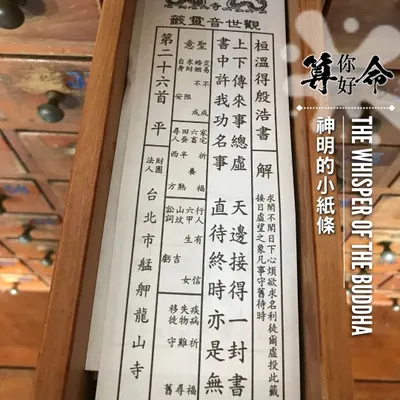 寺
觀世音靈籤
桓溫得殷浩書
解
求閒不閒日下心煩欲求名利徒爾虛投此籤
接日虛望之象凡事守舊待時
上下傳來事總虛 天邊接得一封書
書中許我功名事 直待終時亦是無
聖意
交易不成
婚姻不成
求財阻
自身安
家宅祈福
六畜養
田蚕半熟
尋人西方
行人有信
六甲生女
山坟吉
訟詞虧
疾病祈福
失物難尋
移徙守舊
第二十六首 平
財團法人 台北市艋舺龍山寺
你好
算命
THE WHISPER OF THE BUDDHA
神明的小紙條